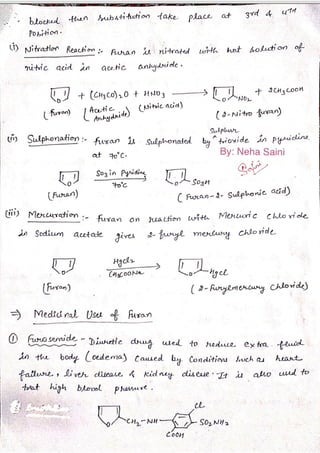 blocked then substitution take place at 3rd & 4th
Position.
(i) Nitration Reaction :- furan is nitrated with hot solution of
nitric acid in acetic anhydride.
+ (CH3CO)2O + HNO3 → + 2CH3COOH
(furan) (Acetic Anhydride) (Nitric Acid) NO2 (2-Nitro furan)
(ii) Sulphonation :- furan is Sulphonated by Sulphur trioxide in pyridine
at 70°C.
By: Neha Saini
SO3 in Pyridine
70°C
SO3H
(Furan) (Furan-2-Sulphonic acid)
(iii) Mercuration :- furan on reaction with Mercuric Chloride
in Sodium acetate gives 2-furyl mercury chloride.
HgCl2
CH3COONa
HgCl
(Furan) (2-Furylmercury Chloride)
⇒ Medicinal Uses of Furan
① Furosemide - Diuretic drug used to reduce extra fluid
in the body (oedema) caused by Conditions such as heart
failure, liver disease & kidney disease. It is also used to
treat high blood pressure.
Cl
CH2-NH SO2NH2
COOH